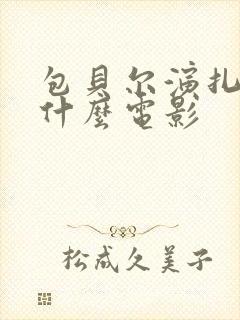 包贝尔演扎
什麼電影
松成久美子